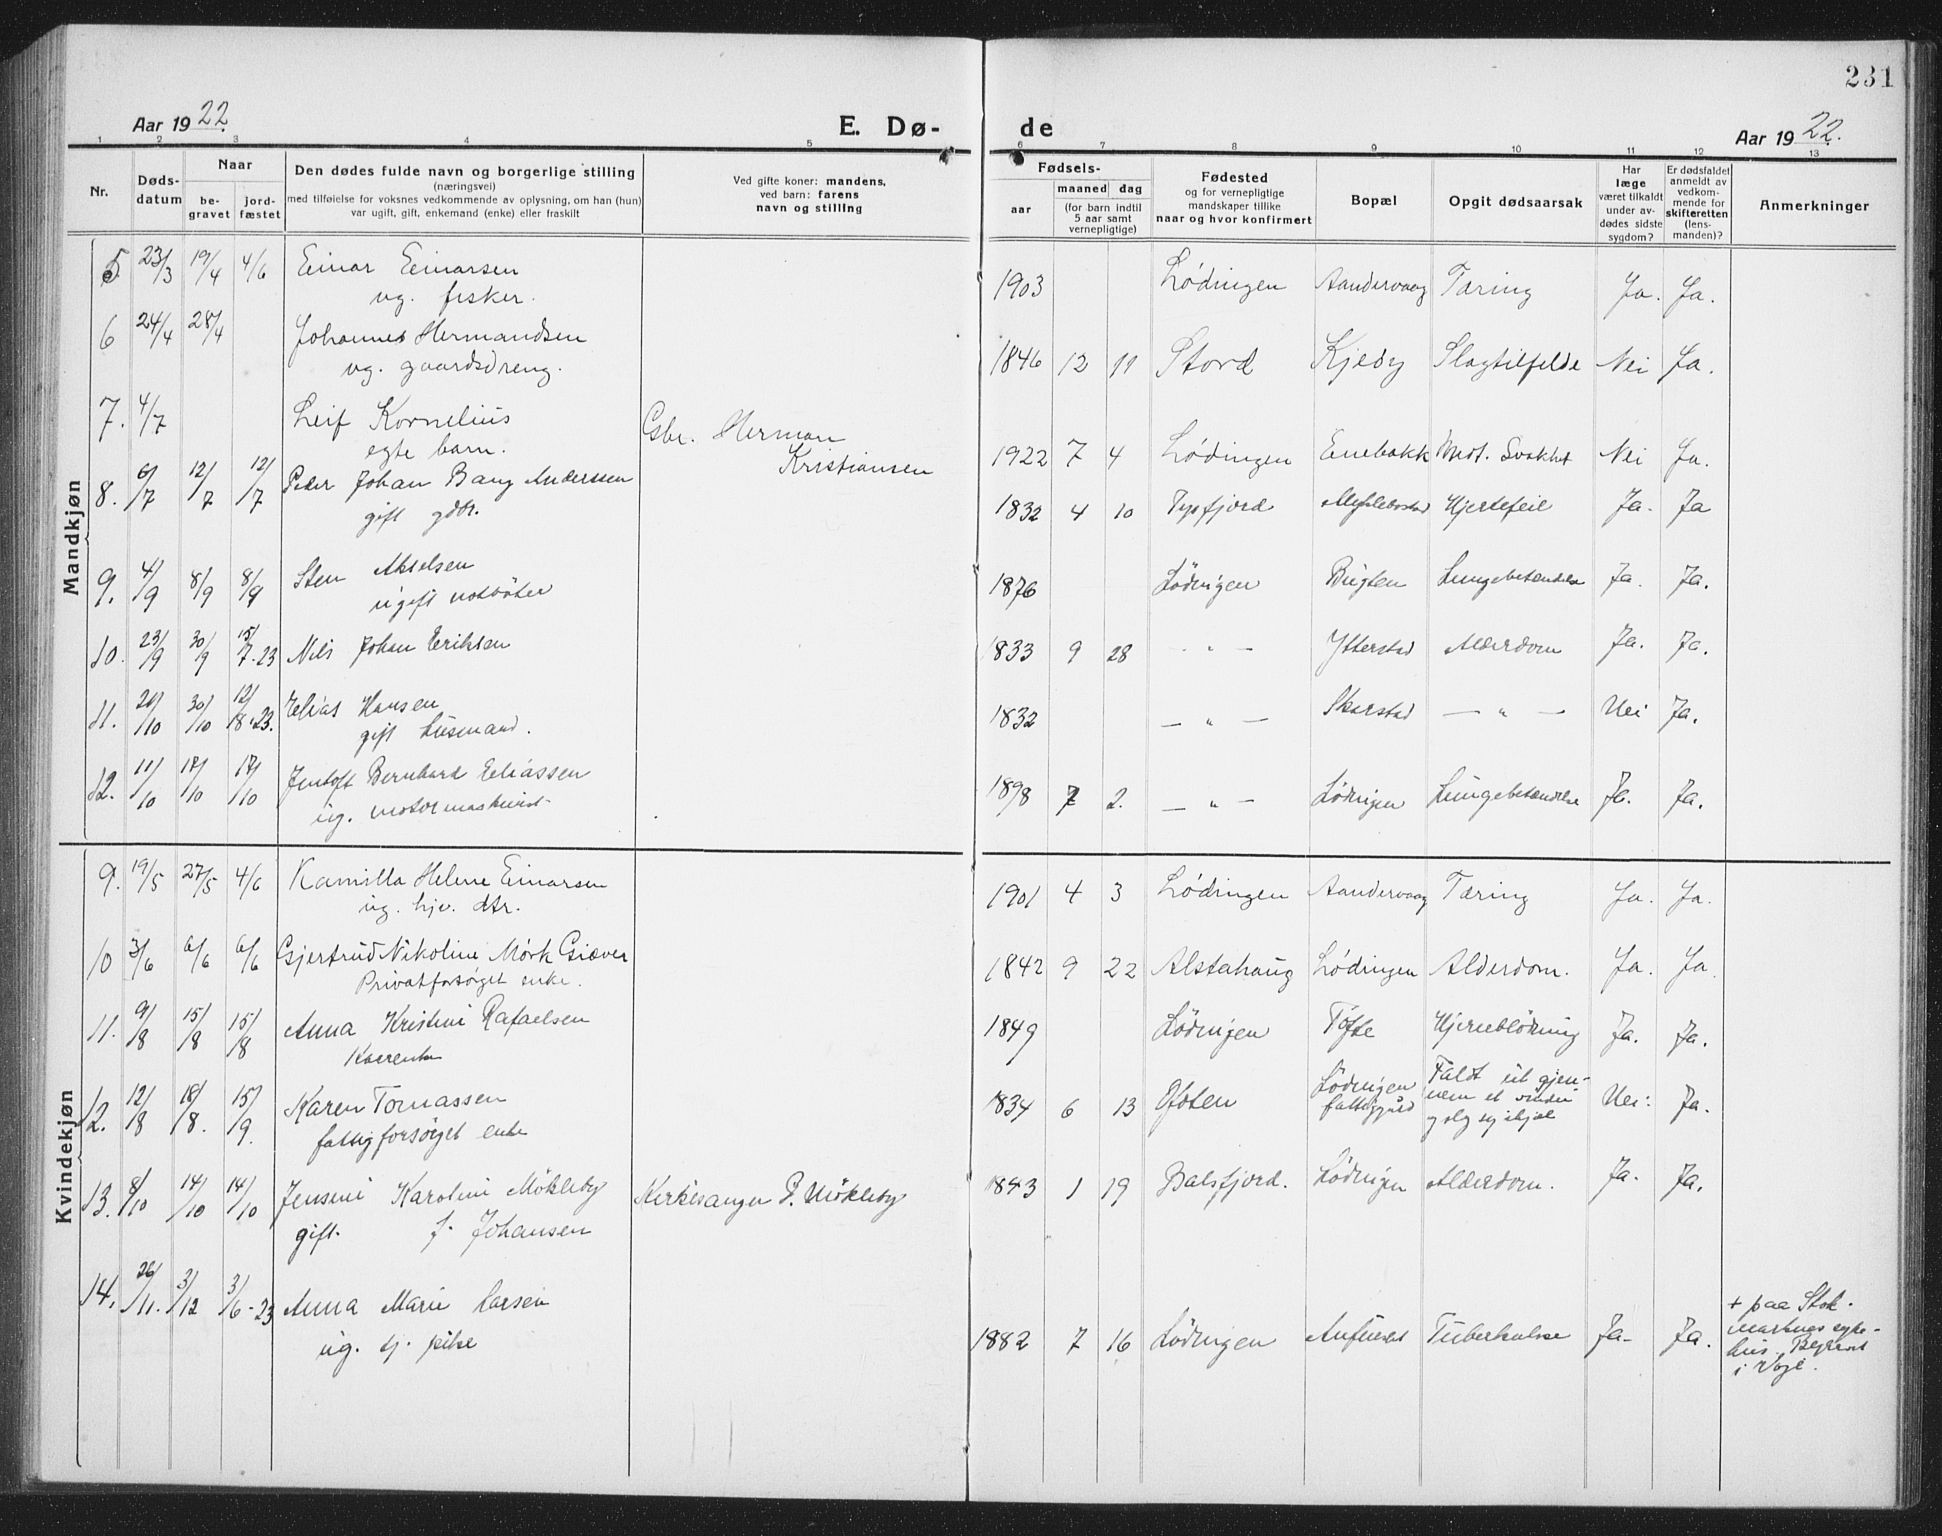 231
Aar 1922
E. Dø-
de
Aar 1922.
1 2 3 4 5 6 7 8 9 10 11 12 13
Nr.
Døds-
datum
Naar
be-
gravet
jord-
fæstet
Den dødes fulde navn og borgerlige stilling
(næringsvei)
med tilføielse for voksnes vedkommende av oplysning, om han (hun)
var ugift, gift, enkemand (enke) eller fraskilt
Ved gifte koner: mandens,
ved barn: farens
navn og stilling
Fødsels-
aar
maaned dag
(for barn indtil
5 aar samt
vernepligtige)
Fødested
og for vernepligtige
mandskaper tillike
naar og hvor konfirmert
Bopæl
Opgit dødsaarsak
Har
læge
været tilkaldt
under av-
dødes sidste
sygdom?
Er dødsfaldet
anmeldt av
vedkom-
mende for
skifteretten
(lens-
manden)?
Anmerkninger
Mandkjøn
5 23/3 19/4 4/6 Einar Einarsen
ug. fisker.
1903 Lødingen Aandervaag Tæring Ja. Ja.
6 24/4 28/4 Johannes Hermandsen
ug. gaardsdreng.
1846 12 11 Stord Kjeøy Slagtilfelde Nei Ja.
7. 4/7 Leif Kornelius
egte barn.
Gsbr. Herman
Kristiansen
1922 7 4 Lødingen Enebakk Medf. Svakhet Nei Ja.
8. 6/7 12/7 12/7 Peder Johan Bang Anderssen
gift gdbr.
1832 4 10 Tysfjord Myklebostad Hjertefeil Ja. Ja
9. 4/9 8/9 8/9 Sten Akselsen
ugift notbøter
1876 Lødingen Bugten Lungebetændelse Ja. Ja.
10. 23/9 30/9 15/7-23 Nils Johan Eriksen
1833 9 28 - " - Ytterstad Alderdom Ja. Ja.
11. 20/10 30/10 12/8-23. Elias Hansen
gift husmand.
1832 - " - Skarstad - " - Nei Ja.
12. 11/10 17/10 17/10 Jentoft Bernhard Eliassen
ug. motormaskinist
1898 7 2. - " - Lødingen Lungebetændelse Ja. Ja.
Kvindekjøn
9. 19/5 27/5 4/6 Kamilla Helene Einarsen
ug. hjv. dtr.
1901 4 3 Lødingen Aandervaag Tæring Ja. Ja.
10 3/6 6/6 6/6 Gjertrud Nikoline Mørk Giæver
Privatforsørget enke.
1842 9 22 Alstahaug Lødingen Alderdom. Ja. Ja.
11. 9/8 15/8 15/8 Anna Kristine Rafaelsen
Kaarenke
1849 Lødingen Tofte Hjerneblødning Ja. Ja.
12. 12/8 18/8. 15/9. Karen Tomassen
fattigforsørget enke
1834 6 13 Ofoten Lødingen
fattiggård
Faldt ut gjen-
nem et vindu
og slog sig ihjæl
Nei. Ja.
13. 8/10 14/10 14/10 Jensine Karoline Møkleby
gift. f. Johansen
Kirkesanger P. Møkleby
1843 1 19 Balsfjord. Lødingen Alderdom. Ja. Ja.
14. 26/11. 3/12 3/6-23 Anna Marie Larsen
ug. tj. pike
1882 7 16 Lødingen Tuberkulose Ja. Ja.
+ paa Stok-
marknes syke-
hus. Begravet
i